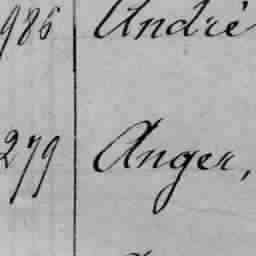 986 André
279 Anger,